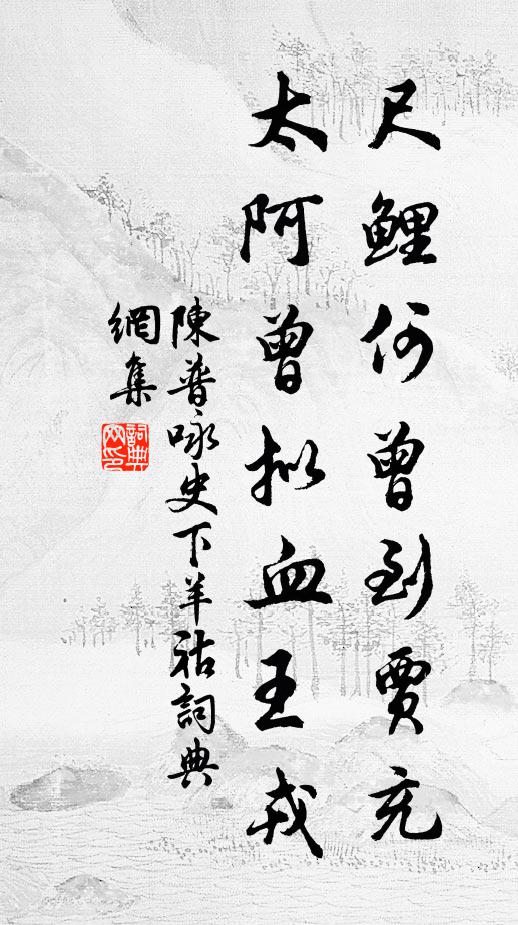 尺鯉何曾到賈充
太阿曾拟血王戎
陳普咏史下羊祜詞典
網集
詞典
网印